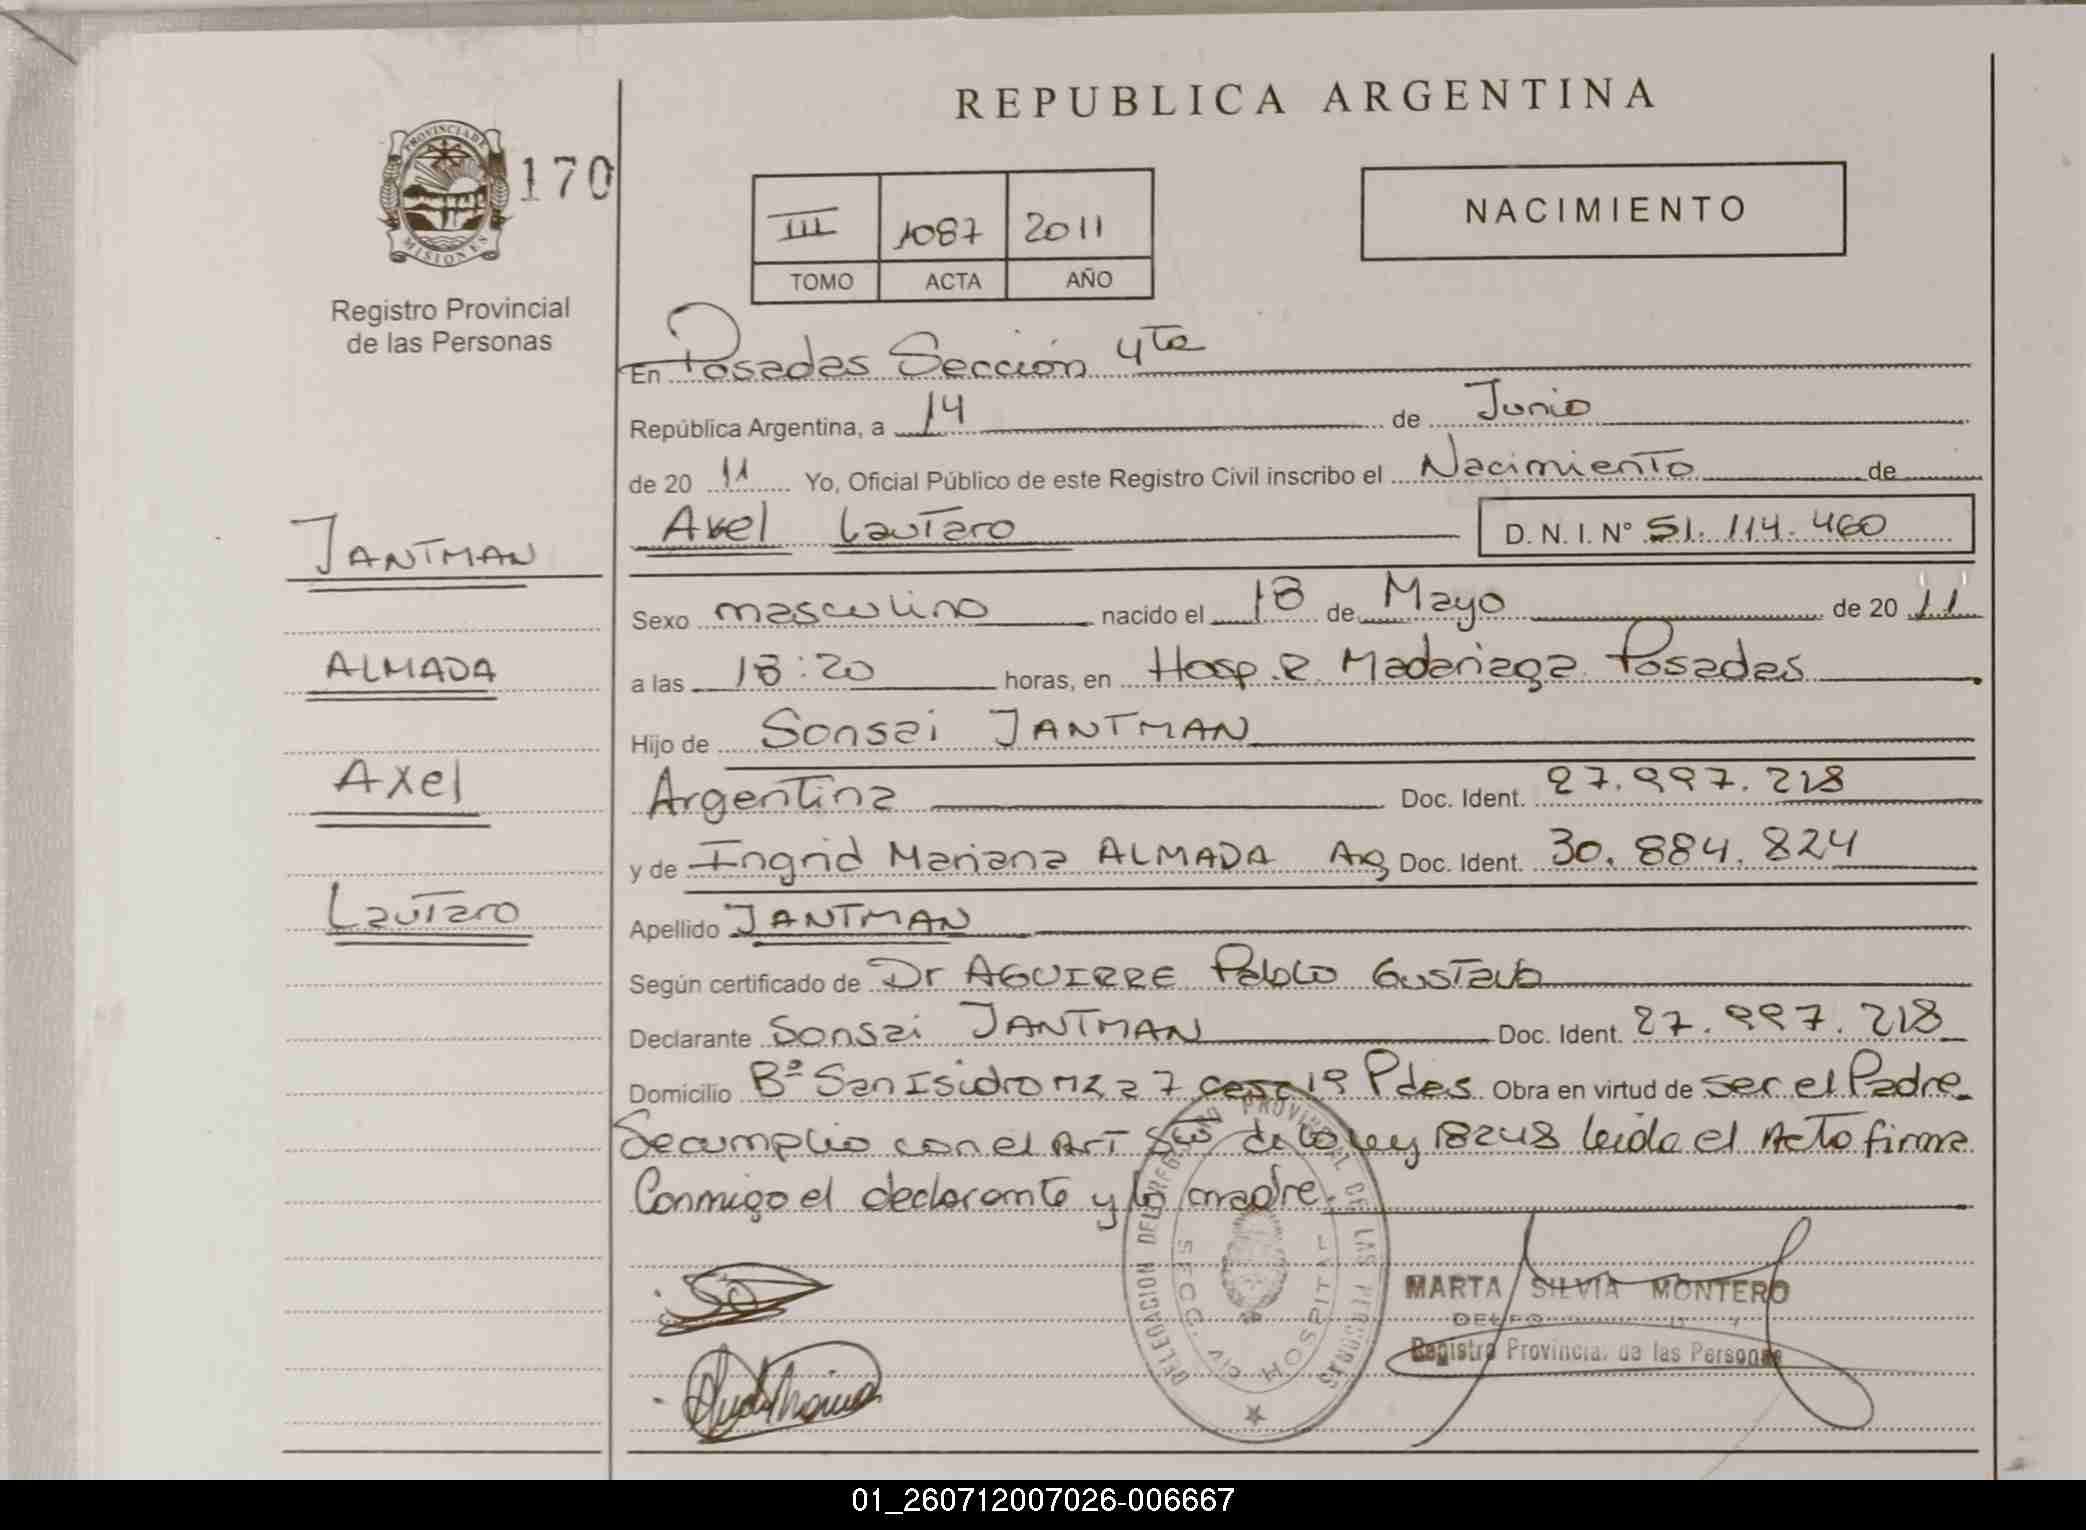 REPUBLICA ARGENTINA
PROVINCIA DE
MISIONES
170
NACIMIENTO
III 1087 2011
TOMO ACTA AÑO
Registro Provincial
de las Personas
En Posadas Sección 4ta
República Argentina, a 14 de Junio
de 20 11 Yo, Oficial Público de este Registro Civil inscribo el Nacimiento de
Axel Lautaro D.N.I. Nº 51.114.460
JANTMAN
Sexo masculino nacido el 18 de Mayo de 20 11
ALMADA
a las 18:20 horas, en Hosp. R. Madariaga Posadas
Hijo de Sonsai JANTMAN
Axel
Argentina Doc. Ident. 27.997.218
y de Ingrid Mariana ALMADA Arg Doc. Ident. 30.884.824
Lautaro
Apellido JANTMAN
Según certificado de Dr AGUIRRE Pablo Gustavo
Declarante Sonsai JANTMAN Doc. Ident. 27.997.218
Domicilio Bº San Isidro MZ 27 casa 19 Pdas Obra en virtud de ser el Padre
Se cumplio con el Art 5to de la ley 18248 leida el Acta firma
Conmigo el declarante y la madre.
DELEGACION DEL REGISTRO PROVINCIAL DE LAS PERSONAS
SECC. CIV HOSPITAL
MARTA SILVIA MONTERO
Registro Provincial de las Personas
01_260712007026-006667